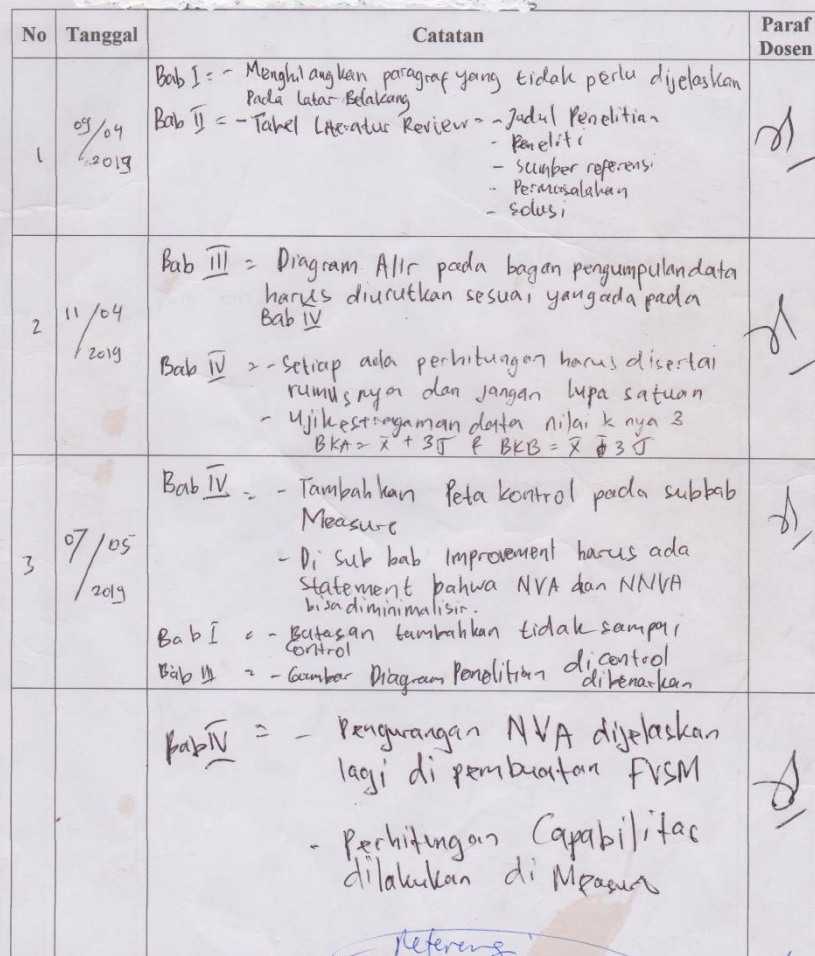 No Tanggal Catatan Paraf Dosen
1 09/04 2019
Bab I = - Menghilangkan paragraf yang tidak perlu dijelaskan
Pada Latar Belakang
Bab II = - Tabel Literatur Review = - Judul Penelitian
- Peneliti
- Sumber referensi
- Permasalahan
- Solusi
2 11/04 2019
Bab III = Diagram Alir pada bagan pengumpulan data
harus diurutkan sesuai yang ada pada
Bab IV
Bab IV = - Setiap ada perhitungan harus disertai
rumusnya dan jangan lupa satuan
- Uji keseragaman data nilai k nya 3
BKA = x̄ + 3σ & BKB = x̄ - 3σ
3 07/05 2019
Bab IV = - Tambahkan Peta kontrol pada subbab
Measure
- Di sub bab Improvement harus ada
Statement bahwa NVA dan NNVA
bisa diminimalisir.
Bab I = - Batasan tambahkan tidak sampai
Control
Bab III = - Gambar Diagram Penelitian di control
dibenarkan
Bab IV = - Pengurangan NVA dijelaskan
lagi di pembuatan FVSM
- Perhitungan Capabilitas
dilakukan di Measure
Referensi